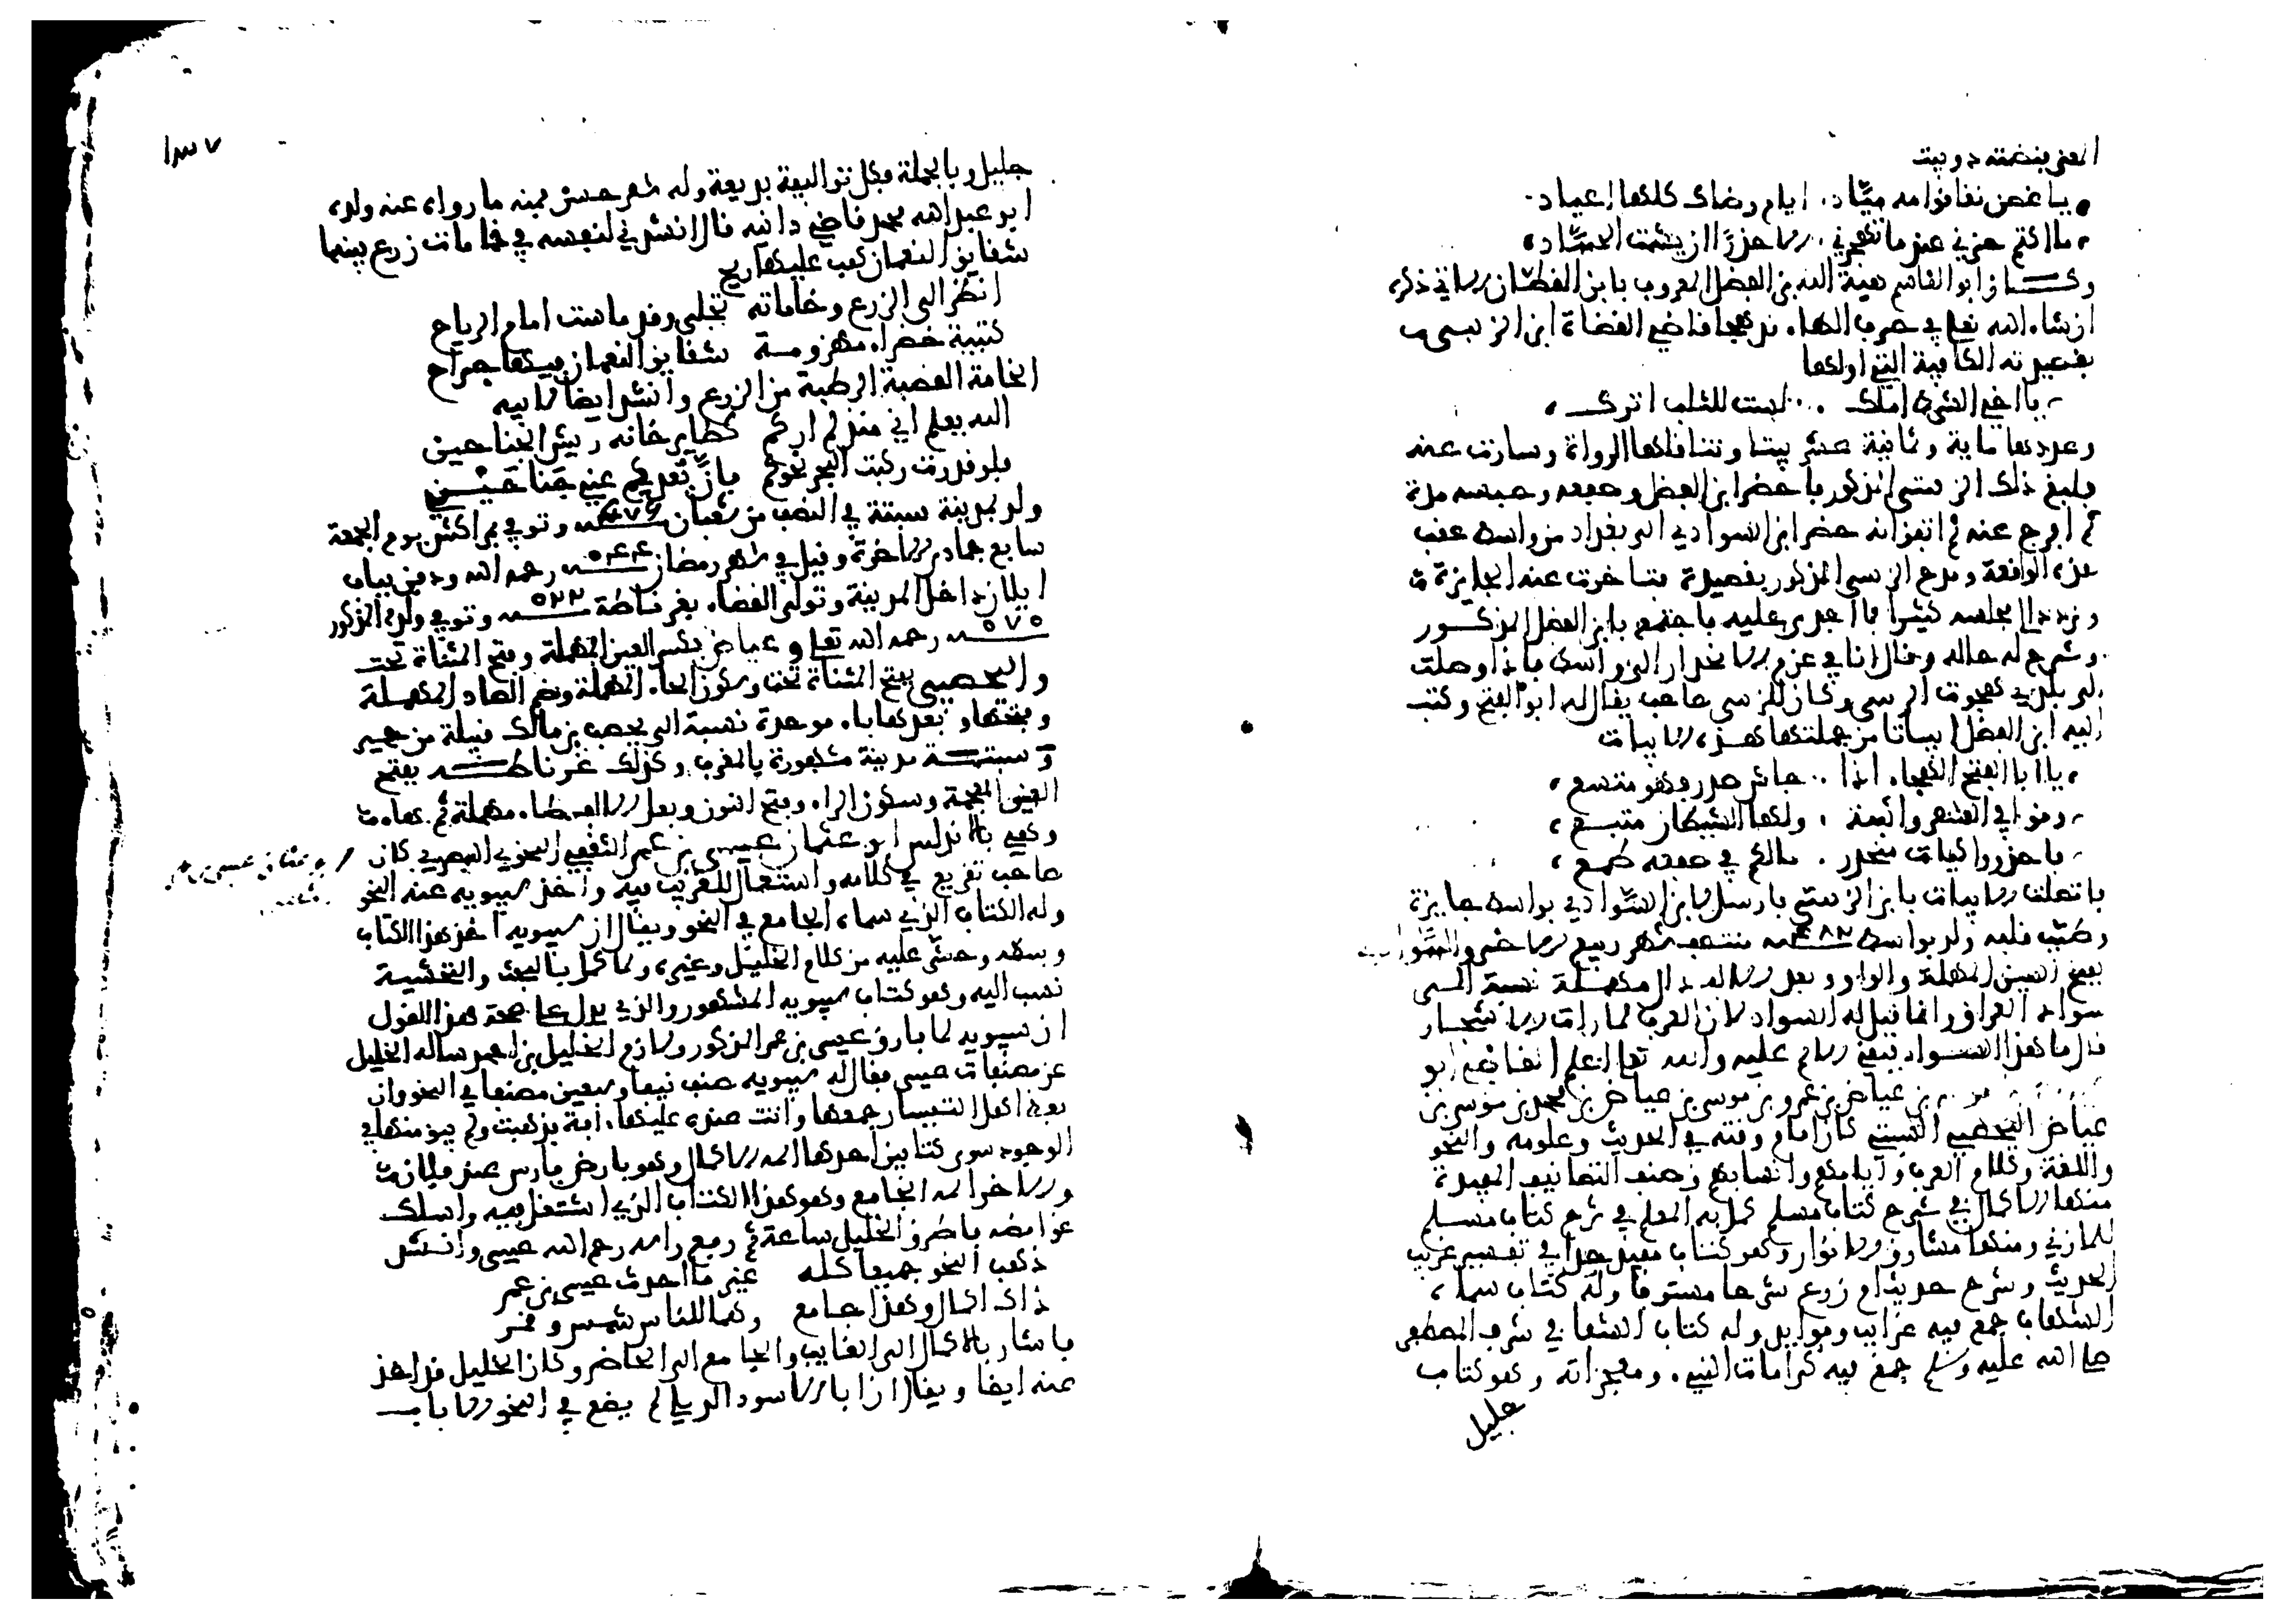 يا غصن نقا قوامه مياد. ايام رضاك كلها اعياد.
ما اكتم حزني عندما تهجرني. الا حذرا ان يشمت الحساد
وكان ابو القاسم هبة الله بن الفضل المعروف بابن القطان الاتي ذكره
ان شاء الله تعلى في حرف الهاء قد هجا قاضي القضاة ابن الزينبي
بقصيدته الكافية التي اولها
يا اخي الشرط املك ... لست للثلب اترك
وعددها ماية وثمانية عشر بيتا وتناقلها الرواة وسارت عنه
فبلغ ذلك الزينبي المذكور فاحضر ابن الفضل وصفعه وحبسه مدة
ثم افرج عنه ثم اتفق انه حضر ابن السوادي الى بغداد من واسط عقب
هذه الواقعة ومدح الزينبي المذكور بقصيدة فتاخرت عنه الجايزة
وتردد الى مجلسه كثيرا فما اجدى عليه فاجتمع بابن الفضل المذكور
وشرح له حاله وقال انا في عزم الانحدار الى واسط فاذا وصلت
الى بلدي هجوت الزينبي وكان للزينبي صاحب يقال له ابو الفتح وكتب
اليه ابن الفضل ابياتا من جملتها هذه الابيات
يا ابا الفتح الهجاء اذا .. جاش صدر وهو متسع
وقوافي الشعر واثبة . ولها الشيطان متبع
فاحذروا كافات منحدر . مالكم في صفعه طمع
فاتصلت الابيات بابن الزينبي فارسل لابن السوادي بواسط جايزة
وطيب قلبه ولد بواسط سنة ٤٨٢ منتصف شهر ربيع الاخر والسوادي
بفتح السين المهملة والواو وبعد الالف دال مهملة نسبة الى
سواد العراق وانما قيل له السواد لان العرب لما رات الاشجار
قال ما هذا السواد فبقي الاسم عليه والله تعلى اعلم القاضي ابو
بن عياض بن عمرو بن موسى بن عياض بن محمد بن موسى بن
عياض اليحصبي السبتي كان امام وقته في الحديث وعلومه والنحو
واللغة وكلام العرب وايامهم وانسابهم وصنف التصانيف المفيدة
منها الاكمال في شرح كتاب مسلم كمل به المعلم في شرح كتاب مسلم
للمازني ومنها مشارق الانوار وهو كتاب مفيد جدا في تفسير غريب
الحديث وشرح حديث ام زرع شرحا مستوفا وله كتاب سماه
جمع فيه غرايب وفوايد وله كتاب الشفا في شرف المصطفى
صلى الله عليه وسلم جمع فيه كرامات النبي. ومعجزاته وهو كتاب
جليل
١٣٧
جليل وبالجملة فكل تواليفه بديعة وله شعر حسن فمنه ما رواه عنه ولده
ابو عبد الله محمد قاضي دانية قال انشدني لنفسه في خامات زرع بينها
شقايق النعمان هبت عليها ريح
انظر الى الزرع وخاماته تحكي وقد ماست امام الرياح
كتيبة خضراء مهزومة شقايق النعمان فيها جراح
الخامة القصبة الرطبة من الزرع وانشد ايضا لابيه
الله يعلم اني منذ لم اركم كطاير خانه ريش الجناحين
فلو قدرت ركبت البحر نحوكم فان بعدكم عني جنا حيني
ولد بمدينة سبتة في النصف من شعبان سنة ٤٧٦ وتوفي بمراكش يوم الجمعة
سابع جمادى الاخرة وقيل في شهر رمضان سنة ٥٤٤ رحمه الله ودفن بباب
ايلان داخل المدينة وتولى القضاء بغرناطة سنة ٥٣٢ وتوفي ولده المذكور
سنة ٥٧٥ رحمه الله تعلى وعياض بكسر العين المهملة وفتح المثناة تحت
واليحصبي بفتح المثناة تحت وسكون الحاء المهملة وضم الصاد المهملة
وفتحها وبعدها باء موحدة نسبة الى يحصب بن مالك قبيلة من حمير
وسبتة مدينة مشهورة بالمغرب وكذلك غرناطة بفتح
الغين المعجمة وسكون الراء وفتح النون وبعد الالف طاء مهملة ثم هاء
وهي بالاندلس ابو عثمان عيسى بن عمر الثقفي النحوي البصري كان
ابو عثمان عيسى بن عمر
صاحب تقريع في كلامه واستعمال للغريب فيه واخذ سيبويه عنه النحو
وله الكتاب الذي سماه الجامع في النحو ويقال ان سيبويه اخذ هذا الكتاب
وبسطه وحشى عليه من كلام الخليل وغيره ولما كمل بالبحث والتحشية
نسب اليه وهو كتاب سيبويه المشهور والذي يدل على صحة هذا القول
ان سيبويه لما فارق عيسى بن عمر المذكور ولازم الخليل بن احمد ساله الخليل
عن مصنفات عيسى فقال له سيبويه صنف نيفا وسبعين مصنفا في النحو وان
بعض اهل اليسار جمعها واتت عنده عليها افة فذهبت ولم يبق منها في
الوجود سوى كتابين احدهما اسمه الاكمال وهو بارض فارس عند فلان
والاخر اسمه الجامع وهو هذا الكتاب الذي اشتغل فيه واسلك
غوامضه فاطرق الخليل ساعة ثم رفع راسه رحم الله عيسى وانشد
ذهب النحو جميعا كله غير ما احدث عيسى بن عمر
ذاك اكمال وهذا جامع وهما للناس شمس وقمر
فاشار بالاكمال الى الغايب والجامع الى الحاضر وكان الخليل قد اخذ
عنه ايضا ويقال ان ابا الاسود الديلي لم يضع في النحو الا باب